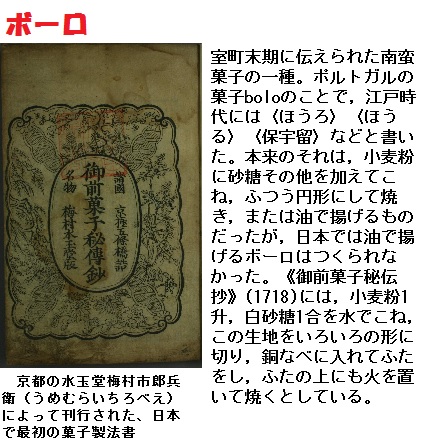 ボーロ
諸國名物
御前菓子秘傳抄
室町末期に伝えられた南蛮
菓子の一種。ポルトガルの
菓子boloのことで，江戸時
代には〈ほうろ〉〈ほう
る〉〈保宇留〉などと書い
た。本来のそれは，小麦粉
に砂糖その他を加えてこ
ね，ふつう円形にして焼
き，または油で揚げるもの
だったが，日本では油で揚
げるボーロはつくられな
かった。《御前菓子秘伝
抄》(1718)には，小麦粉1
升，白砂糖1合を水でこね，
この生地をいろいろの形に
切り，銅なべに入れてふた
をし，ふたの上にも火を置
いて焼くとしている。
京都の水玉堂梅村市郎兵
衛（うめむらいちろべえ）
によって刊行された、日本
で最初の菓子製法書